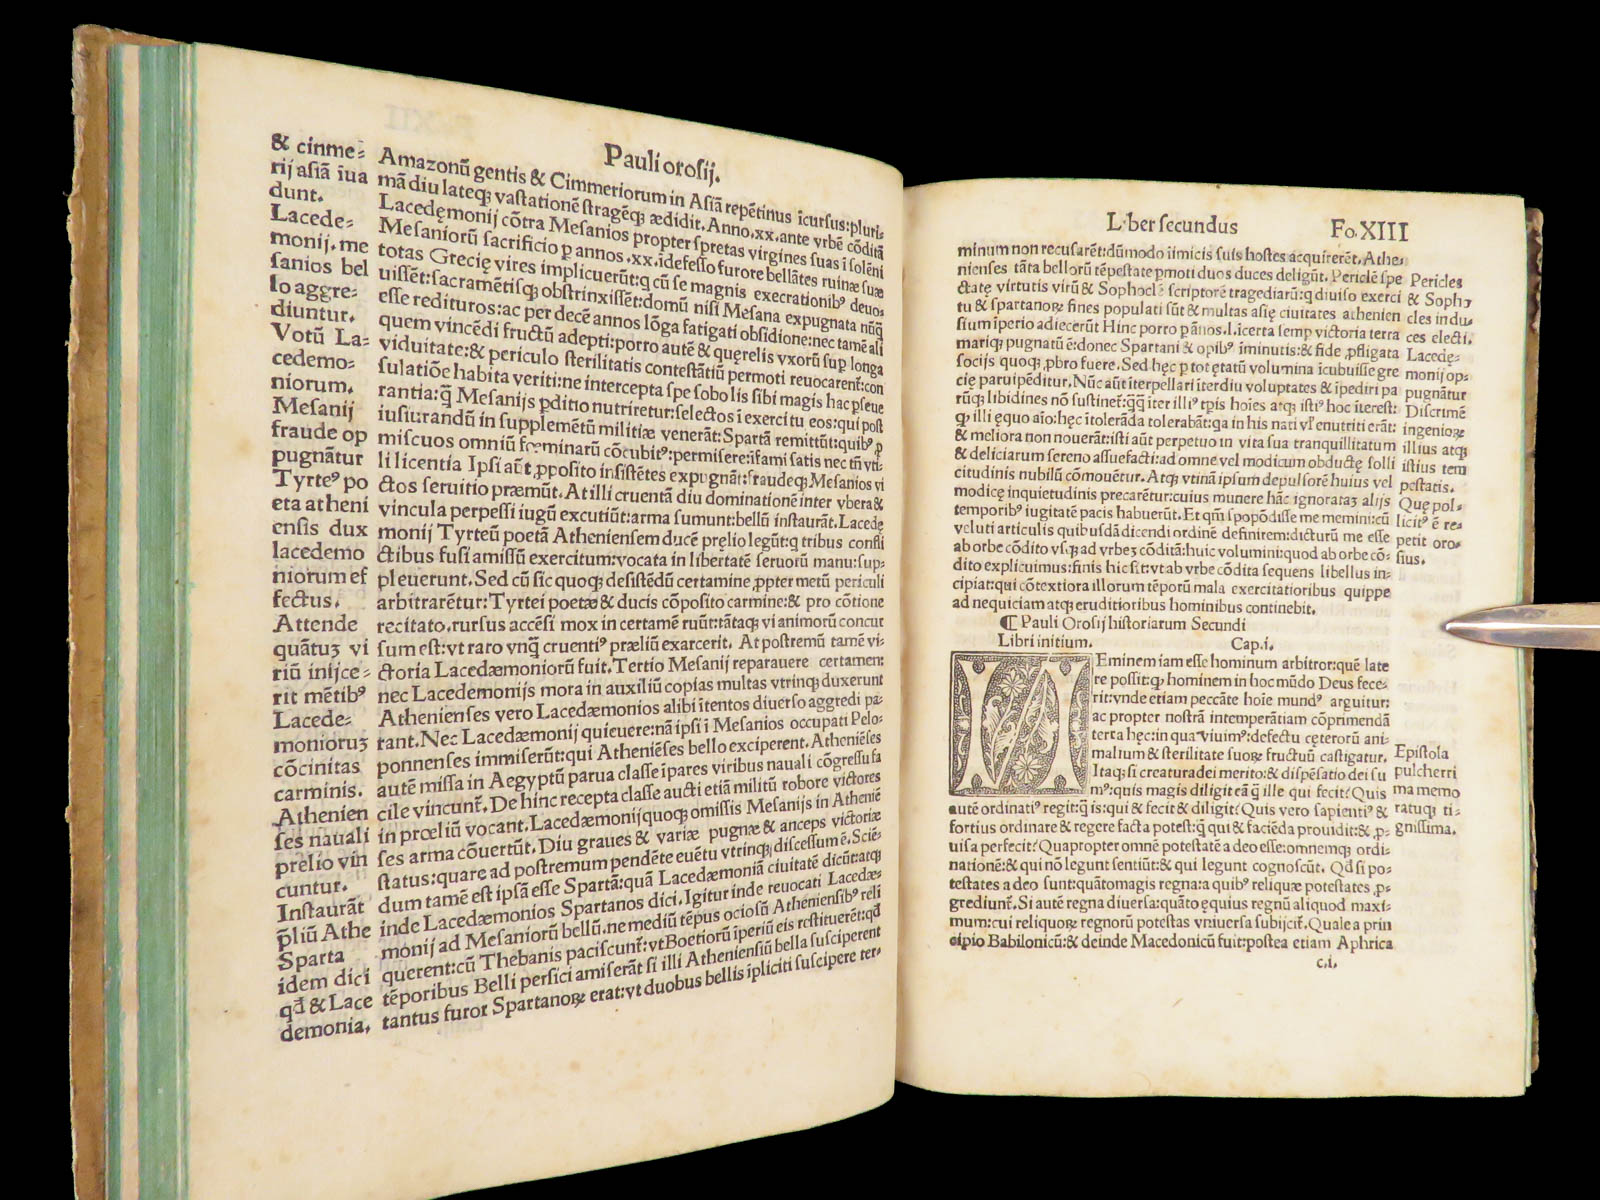 Pauli orosij.
& cinme=
rij asiã īua
dunt.
Lacede=
monij. me
sanios bel
lo aggre=
diuntur.
Votũ La=
cedemo=
niorum.
Mesanij
fraude op
pugnãtur
Tyrteꝰ po
eta atheni
ensis dux
lacedemo
niorum ef
fectus.
Attende
quãtuʒ vi
riũ inijce=
rit mẽtibꝰ
Lacede=
moniorũʒ
cõcinitas
carminis.
Athenien
ses nauali
prelio vin
cuntur.
Instaurãt
p̃liũ Athe
Sparta
idem dici
qđ & Lace
demonia.
Amazonũ gentis & Cimmeriorum in Asiã repẽtinus ĩcursus: pluri=
mã diu lateqꝫ vastationẽ stragẽqꝫ ædidit. Anno. xx. ante vrbẽ cõditã
Lacedęmonij cõtra Mesanios propter spretas virgines suas ĩ solẽni
Mesaniorũ sacrificio ꝑ annos. xx. ĩdefesso furore bellãtes ruinæ suæ
totas Greciẹ vires implicuerũt: q cũ se magnis execrationibꝰ deuo=
uissẽt: sacramẽtisqꝫ obstrinxissẽt: domũ nisi Mesana expugnata nũq̃
esse redituros: ac per decẽ annos lõga fatigati obsidione: nec tamẽ ali
quem vincẽdi fructũ adepti: porro autẽ & quęrelis vxorũ suꝑ longa
viduitate: & periculo sterilitatis contestãtiũ permoti reuocarent̃: con
sulatiõe habita veriti: ne intercepta spe sobolis sibi magis hac ꝑseue
rantia: q̃ Mesanijs ꝑditio nutriretur: selectos ĩ exercitu eos: qui post
iusiurandũ in supplemẽtũ militiæ venerãt: Spartã remittũt: quibꝰ ꝓ
miscuos omniũ fœminarũ cõcubitꝰ: permisere: ĩfami satis nec tñ vti=
li licentia Ipsi aũt ꝓposito insistẽtes expugnãt: fraudeqꝫ Mesanios vi
ctos seruitio præmũt. At illi cruentã diu dominationẽ inter vbera &
vincula perpessi iugũ excutiũt: arma sumunt: bellũ instaurãt. Lacedę
monij Tyrteũ poetã Atheniensem ducẽ prẹlio legũt: q tribus confli
ctibus fusi amissũ exercitum: vocata in libertatẽ seruorũ manu: sup=
pleuerunt. Sed cũ sic quoqꝫ desistẽdũ certamine ꝓpter metũ periculi
arbitrarẽtur: Tyrtei poetæ & ducis cõposito carmine: & pro cõtione
recitato, rursus accẽsi mox in certamẽ ruũt: tãtaqꝫ vi animorũ concur
sum est: vt raro vnq̃ cruentiꝰ præliũ exarcerit. At postremũ tamẽ vi=
ctoria Lacedæmoniorũ fuit. Tertio Mesanij reparauere certamen:
nec Lacedemonijs mora in auxiliũ copias multas vtrinqꝫ duxerunt
Athenienses vero Lacedæmonios alibi ĩtentos diuerso aggredi pa=
rant. Nec Lacedæmonij quieuere: nã ipsi ĩ Mesanios occupati Pelo=
ponnenses immiserũt: qui Atheniẽses bello exciperent. Atheniẽses
autẽ missa in Aegyptũ parua classe ĩpares viribus nauali cõgressu fa
cile vincunt̃. De hinc recepta classe aucti etiã militũ robore victores
in prœliũ vocant. Lacedæmonij quoqꝫ omissis Mesanijs in Atheniẽ
ses arma cõuertũt. Diu graues & variæ pugnæ & anceps victoriæ
status: quare ad postremum pendẽte euẽtu vtrinqꝫ discessum ẽ. Sciẽ=
dum tamẽ est ipsã esse Spartã: quã Lacedæmoniã ciuitatẽ dicũt: atqꝫ
inde Lacedæmonios Spartanos dici. Igitur inde reuocati Lacedæ=
monij ad Mesaniorũ bellũ. ne mediũ tẽpus ociosũ Atheniẽsibꝰ reli
querent: cũ Thebanis paciscunt̃: vt Boetiorũ ĩperiũ eis restituerẽt: qđ
tẽporibus Belli persici amiserãt si illi Atheniẽsiũ bella susciperent
tantus furor Spartanoꝝ erat: vt duobus bellis ĩpliciti suscipere ter=
L ber secundus Fo. XIII
minum non recusarẽt: dũmodo ĩimicis suis hostes acquirerẽt. Athe=
nienses tãta bellorũ tẽpestate ꝑmoti duos duces deligũt. Periclẽ spe
ctatẹ virtutis virũ & Sophoclẽ scriptorẽ tragediarũ: q diuiso exerci
tu & spartanoꝝ fines populati sũt & multas asiẹ ciuitates athenien
sium ĩperio adiecerũt Hinc porro ꝑ ãnos. l. icerta semꝑ victoria terra
mariqꝫ pugnatũ ẽ: donec Spartani & opibꝰ ĩminutis: & fide ꝓfligata
socijs quoqꝫ ꝓbro fuere. Sed hẹc ꝑ tot ẹtatũ volumina ĩcubuisse gre
ciẹ parui pẽditur. Nũc aũt ĩterpellari ĩterdiu voluptates & ĩpediri pa
rũqꝫ libidines nõ sustinet̃: q̃q̃ iter illiꝰ tp̃is hoĩes atqꝫ istiꝰ hoc ĩterest:
qꝫ illi ẹquo aĩo: hẹc ĩtolerãda tolerabãt: qa in his nati vl̓ enutriti erãt:
& meliora non nouerãt: isti aũt perpetuo in vita sua tranquillitatum
& deliciarum sereno assuefacti: ad omne vel modicum obductẹ solli
citudinis nubilũ cõmouẽtur. Atqꝫ vtinã ipsum depulsorẽ huius vel
modicẹ inquietudinis precarẽtur: cuius munere hãc ignorataʒ alijs
temporibꝰ iugitatẽ pacis habuerũt. Et qm̃ spopõdisse me memini: cũ
veluti articulis quibusdã dicendi ordinẽ definirem: dicturũ me esse
ab orbe cõdito vsqꝫ ad vrbeʒ cõditã: huic volumini: quod ab orbe cõ=
dito explicuimus: finis hic sit: vt ab vrbe cõdita sequens libellus in=
cipiat: qui cõtextiora illorum tẽporũ mala exercitatioribus quippe
ad nequiciam atqꝫ eruditioribus hominibus continebit.
¶ Pauli Orosij historiarum Secundi
Libri initium. Cap. i.
NEminem iam esse hominum arbitror: quẽ late
re possit: qꝫ hominem in hoc mũdo Deus fece=
rit: vnde etiam peccãte hoĩe mundꝰ arguitur:
ac propter nostrã intemperãtiam cõprimendã
terra hẹc: in qua viuimꝰ: defectu cẹterorũ ani=
malium & sterilitate suoꝝ fructuũ castigatur.
Itaqꝫ si creatura dei merito: & dispẽsatio dei su
mꝰ: quis magis diligit eã q̃ ille qui fecit? Quis
autẽ ordinatiꝰ regit: q̃ is: qui & fecit & diligit? Quis vero sapientiꝰ &
fortius ordinare & regere facta potest: q̃ qui & faciẽda prouidit: & ꝓ=
uisa perfecit? Quapropter omnẽ potestatẽ a deo esse: omnemqꝫ ordi=
nationẽ: & qui nõ legunt sentiũt: & qui legunt cognoscũt. Qđ si po=
testates a deo sunt: quãtomagis regna: a quibꝰ reliquæ potestates ꝓ=
grediunt̃. Si autẽ regna diuersa: quãto ẹquius regnũ aliquod maxi=
mum: cui reliquoꝝ regnorũ potestas vniuersa subijcit̃. Quale a prin
cipio Babilonicũ: & deinde Macedonicũ fuit: postea etiam Aphrica
c. i.
Pericles
& Sopho
cles indu=
ces electi.
Lacedẹ=
monij op=
pugnãtur
Discrimẽ
ingenioꝝ
illius atqꝫ
istius tem
pestatis.
Quę pol=
licitꝰ ẽ re=
petit oro=
sius.
Epistola
pulcherri
ma memo
ratuqꝫ ti=
gnissima.